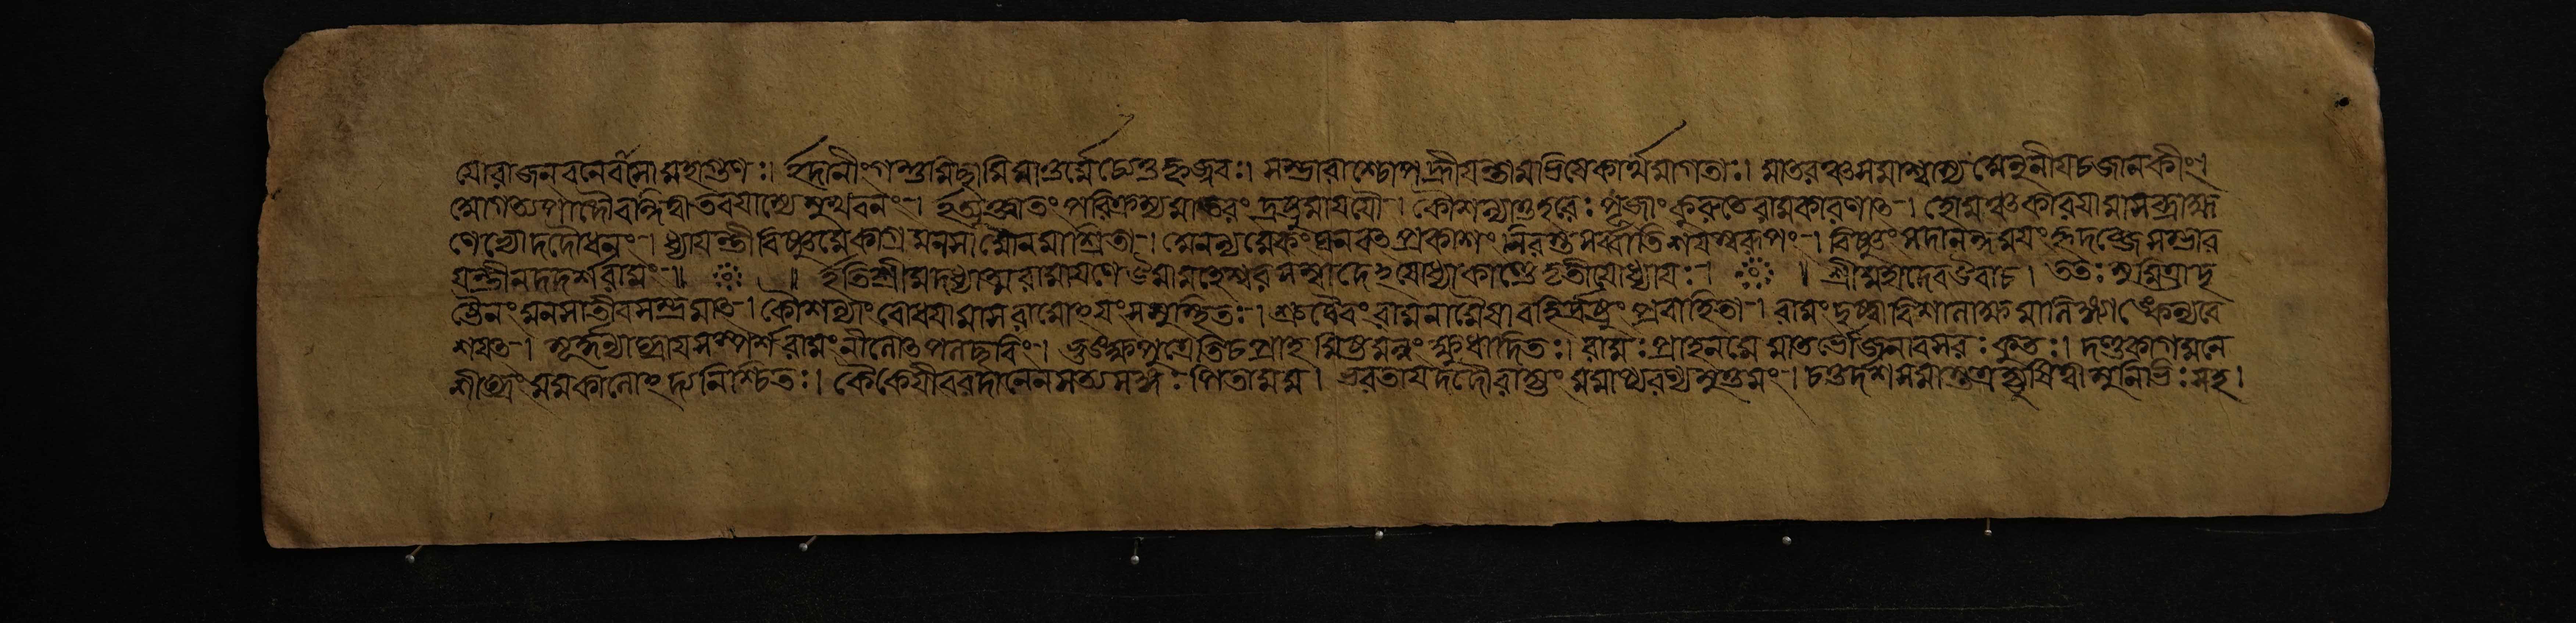 মোরাজনবনেবাসোমহাগুণঃ। ইদানীংগন্তুমিছামিমাতুর্ম্মেছেতুহৃজ্জ্বরঃ। সম্ভারাশ্চোপহ্রীয়ন্তামাভিষেকার্থমাগতাঃ। মাতরঞ্চসমাশ্বাস্যম্মেনুনীয়চজানকীং।
আগত্যপাদৌবন্দিত্বাতবযাস্যেসুখংবনং। ইত্যুক্ত্বাতংপরিক্রম্যমাতরংদ্রষ্টুমাযযৌ। কৌশল্যাতুহরেঃপূজাংকুরুতেরামকারণাত। হোমঞ্চকারযামাসব্রাহ্ম
ণেভ্যোদদৌধনং। ধ্যায়ন্তীবিষ্ণুমেকাগ্রমনসামৌনমাশ্রিতা। ঘনচিত্প্রকাশংনিরস্তসর্ব্বাতিশয়স্বরূপং। বিষ্ণুংসদানন্দময়ংহৃদব্জেসম্ভাব
য়ন্তীনদদর্শরামং॥ ॥ ইতিশ্রীমদধ্যাত্মরামায়ণেউমামহেশ্বরসম্বাদেঽযোধ্যাকাণ্ডেতৃতীয়োধ্যায়ঃ। । শ্রীমহাদেবউবাচ। ততঃসুমিত্রাদৃ
ষ্ট্বৈনংমনসাতীবসম্ভ্রমাত। কৌশল্যাংবোধয়ামাসরামোঽয়ংসমুপস্থিতঃ। শ্রুত্বৈবংরামনামৈষাবহির্দৃষ্টিংপ্রবাহিতা। রামংদৃষ্ট্বাবিশালাক্ষমালিঙ্গ্যাঙ্কেন্যবে
শয়ত। মূর্দ্ধ্ন্যাঘ্রায়সংস্পর্শরামংনীলোত্পলছবিং। ভুঙ্ক্ষ্বপুত্রেতিচপ্রাহমিষ্টমন্নংক্ষুধার্দিতঃ। রামঃপ্রাহনমেমাতর্ভোজনাবসরঃকুতঃ। দণ্ডকাগমনে
শীঘ্রংমমকালোঽদ্যনিশ্চিতঃ। কৈকেয়ীবরদানেনসত্যসন্ধঃপিতামম। ভরতায়দদৌরাজ্যংমমাপ্যরণ্যমুত্তমং। চতুর্দশসমাস্তত্রহ্যুষিত্বামুনিভিঃসহ।